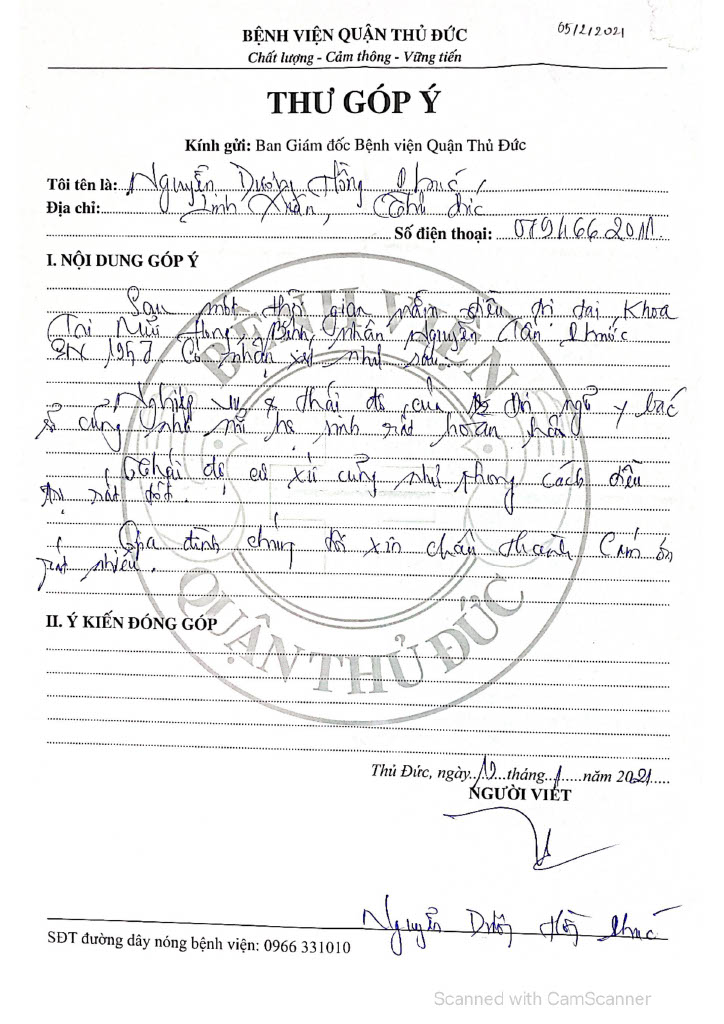 BỆNH VIỆN QUẬN THỦ ĐỨC
05/2/2021
Chất lượng - Cảm thông - Vững tiến
THƯ GÓP Ý
Kính gửi: Ban Giám đốc Bệnh viện Quận Thủ Đức
Tôi tên là: Nguyễn Dương Hồng Phúc
Địa chỉ: Linh Xuân, Thủ Đức
Số điện thoại:
I. NỘI DUNG GÓP Ý
Sau một thời gian nằm điều trị tại Khoa
Tai Mũi Họng, Bệnh nhân Nguyễn Tấn Phước
SN 1957 Có nhận xét như sau.
Nghiệp vụ & thái độ của đội ngũ y bác
sĩ cũng như nữ hộ sinh rất hoàn hảo.
Thái độ cư xử cũng như phong cách điều
trị rất tốt.
Gia đình chúng tôi xin chân thành Cám ơn
rất nhiều.
II. Ý KIẾN ĐÓNG GÓP
BỆNH VIỆN
QUẬN THỦ ĐỨC
Thủ Đức, ngày 10 tháng 1 năm 2021
NGƯỜI VIẾT
Nguyễn Dương Hồng Phúc
SĐT đường dây nóng bệnh viện: 0966 331010
Scanned with CamScanner